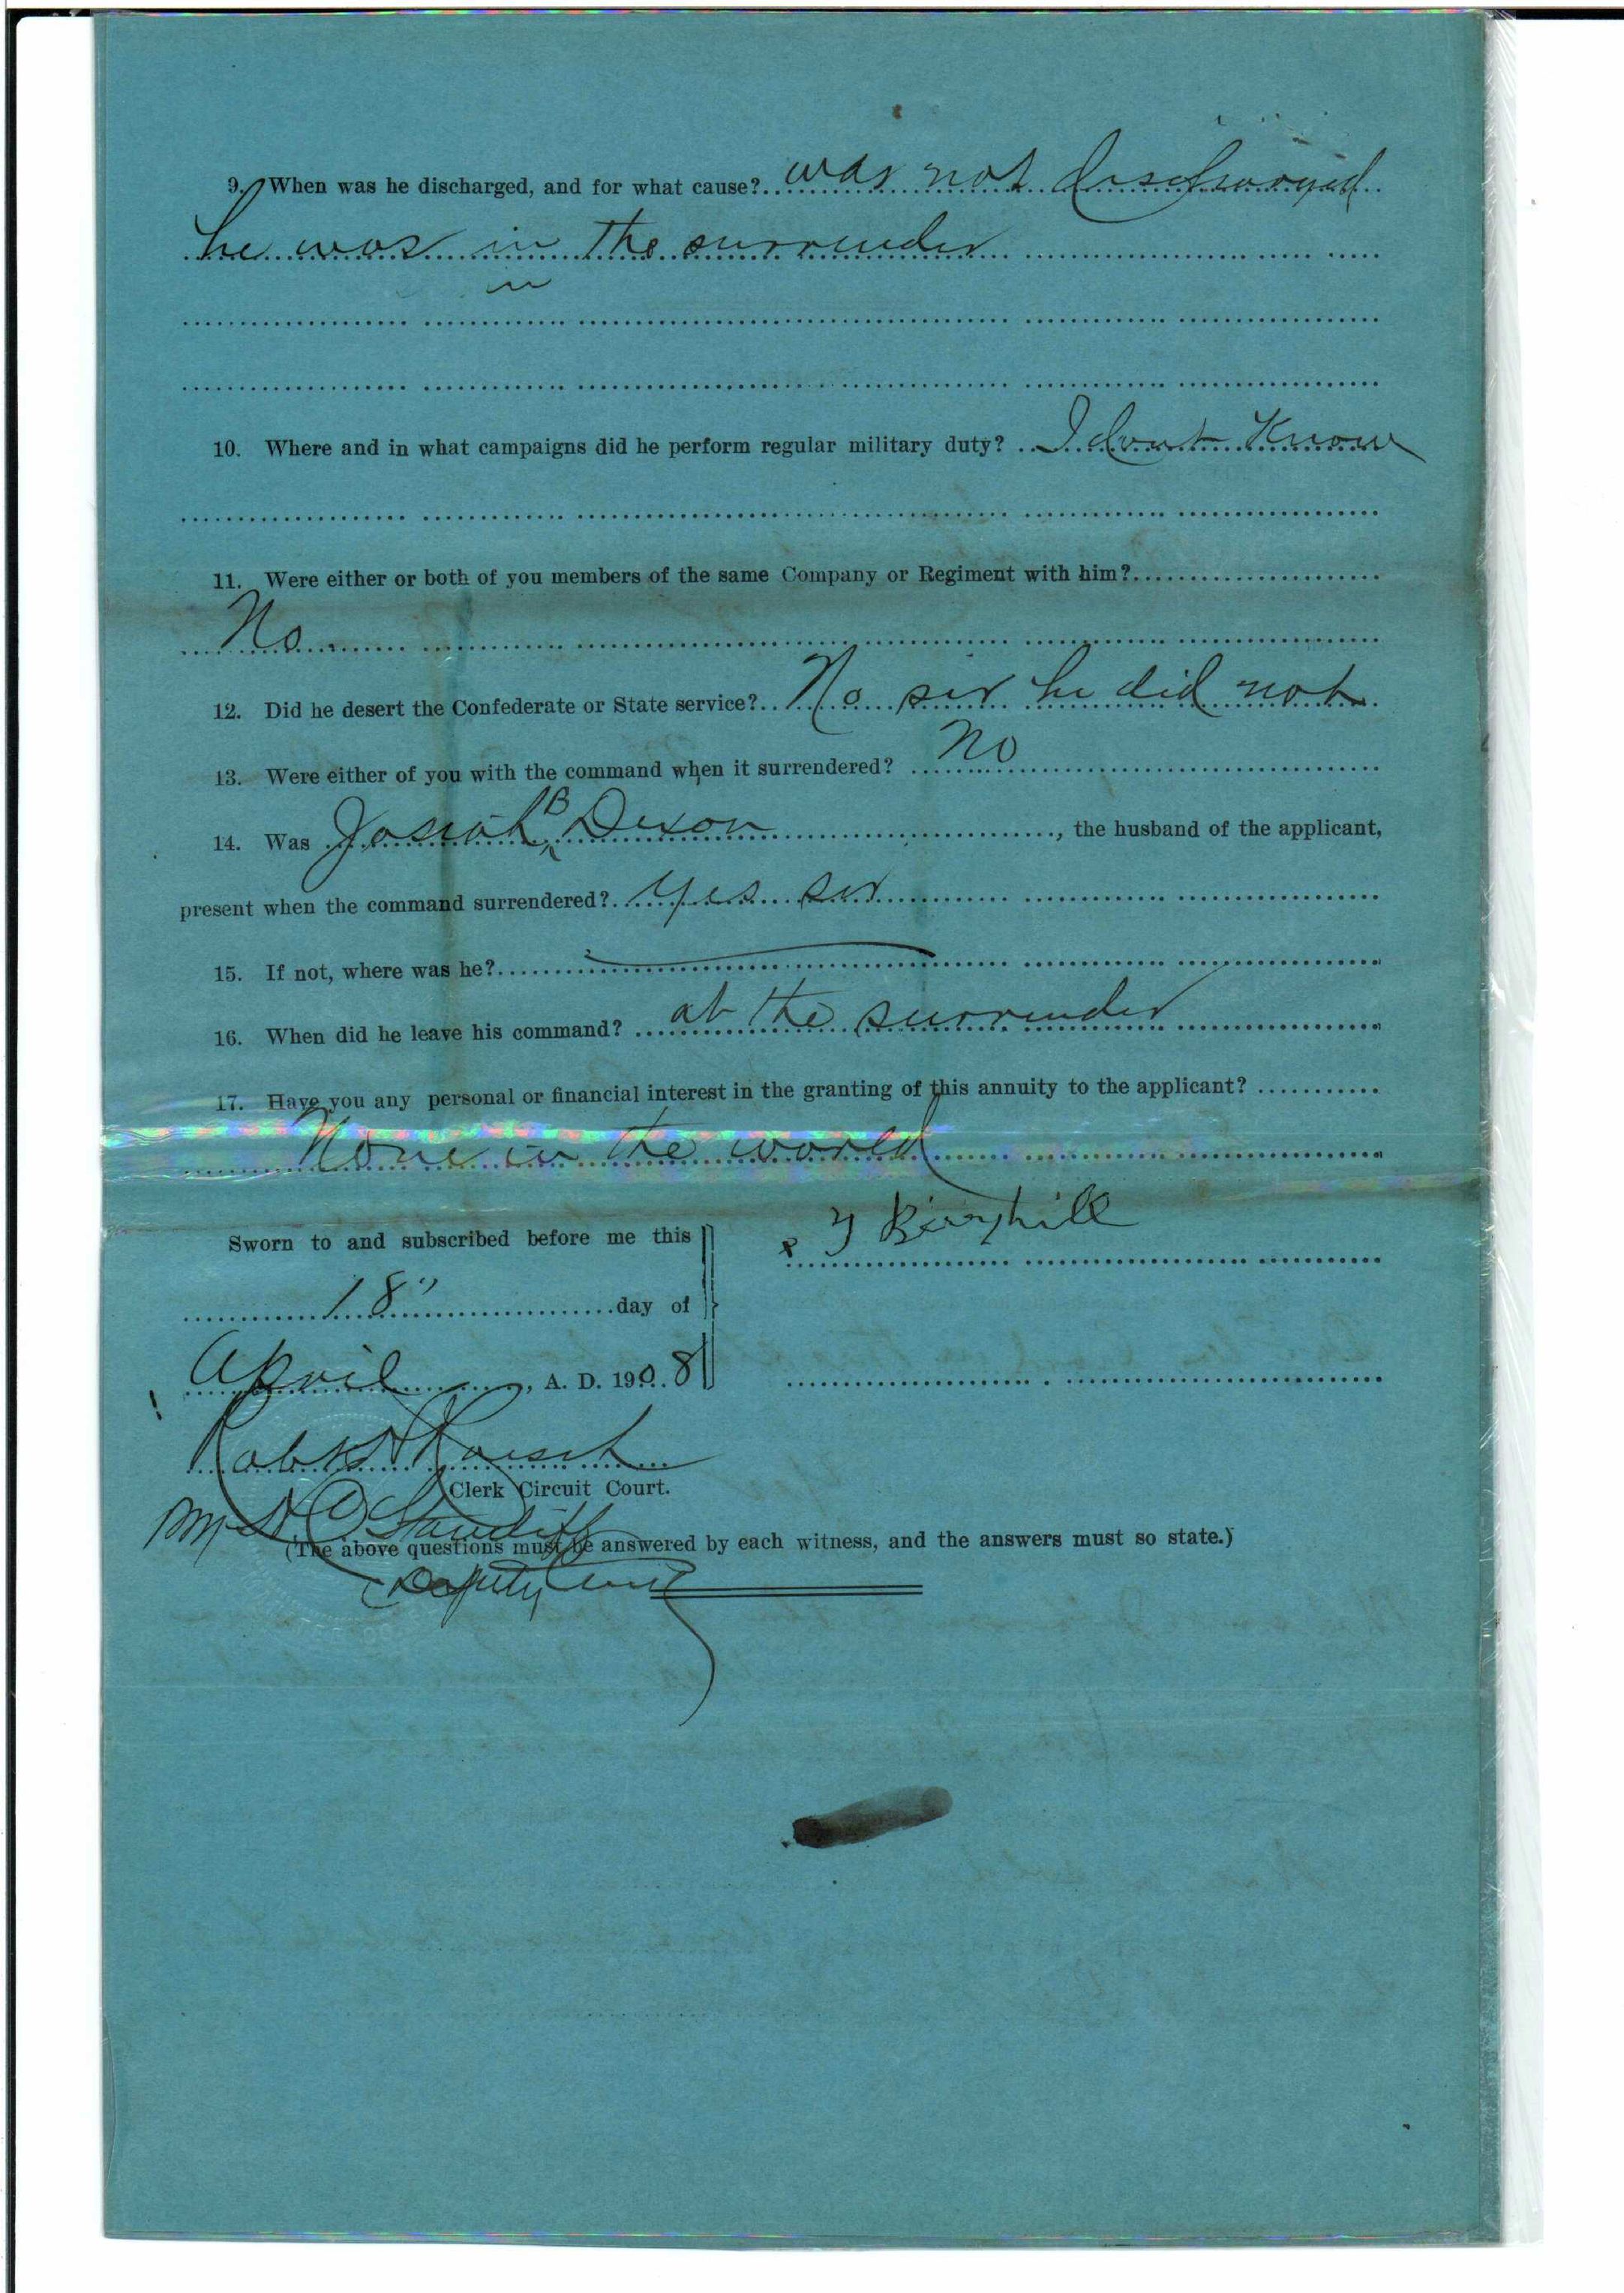 9. When was he discharged, and for what cause? was not discharged
he was in the surrender
in
10. Where and in what campaigns did he perform regular military duty? I dont Know
11. Were either or both of you members of the same Company or Regiment with him?
No
12. Did he desert the Confederate or State service? No sir he did not
13. Were either of you with the command when it surrendered? no
14. Was Josiah B Dixon, the husband of the applicant,
present when the command surrendered? yes sir
15. If not, where was he?
16. When did he leave his command? at the surrender
17. Have you any personal or financial interest in the granting of this annuity to the applicant?
None in the world
Sworn to and subscribed before me this
Berryhill
18" day of
April, A. D. 1908
Clerk Circuit Court.
(The above questions must be answered by each witness, and the answers must so state.)
Deputy Clerk